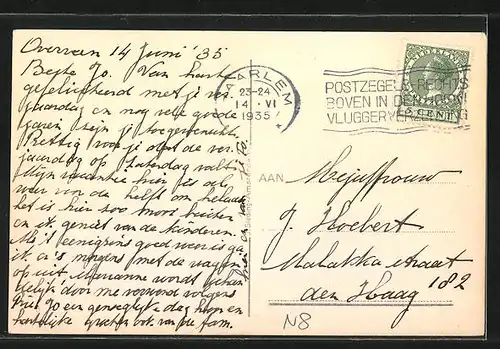 Overveen 14 Juni '35
Beste Jo. Van harte
gefeliciteerd met je ver
jaardag en nog vele goede
jaren zijn je toegewenscht.
Prettig voor je dat de ver
jaardag op Zaterdag valt.
Mijn vacantie hier is al
weer voor de helft om helaas
het is hier zoo mooi buiten
en ik geniet van de kinderen.
Als 't eenigszins goed weer is ga
ik 's morgens met de wagen
op uit. Marianne wordt
door me verwend volgens
Jo een genoegelijke dag toegewenscht en
hartelijke groeten ook van de fam.
HAARLEM
23-24
14 VI
1935
POSTZEGELS RECHTS
BOVEN IN DEN HOEK
VLUGGER VERZENDING
NEDERLAND
5 CENT
AAN
Mejuffrouw
J. Hoebert
Malakkastraat 182
den Haag
N8